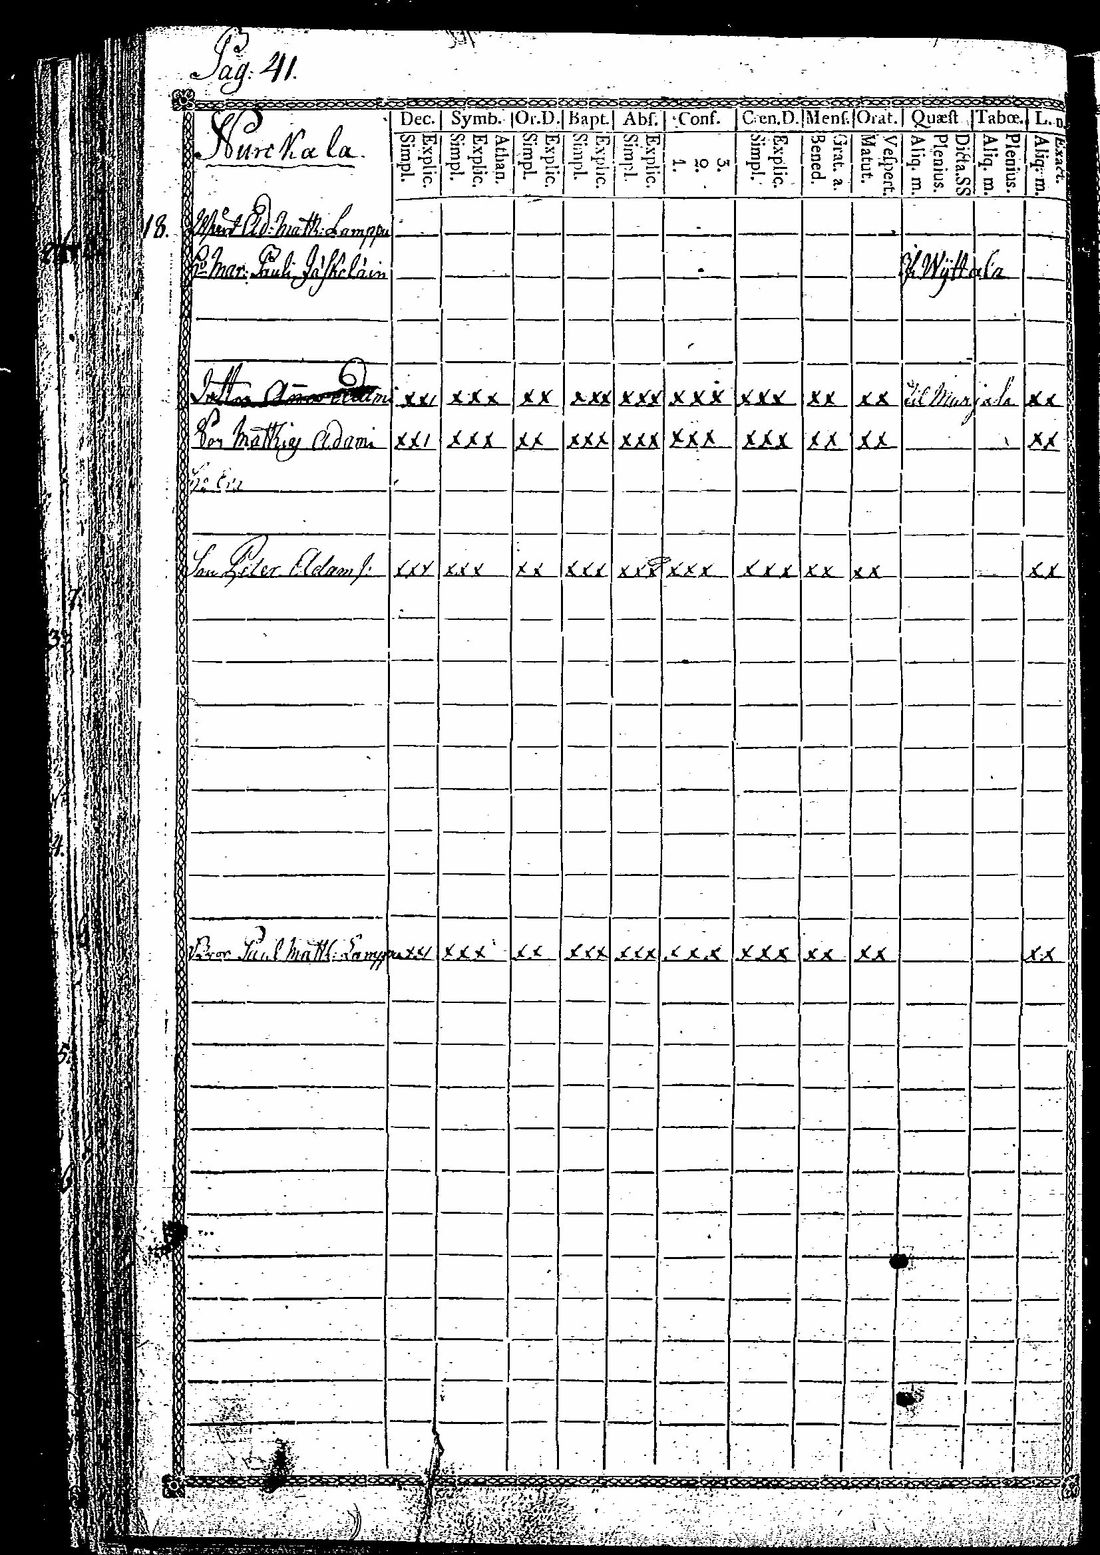 Pag: 41.
Nurckala
Dec. Symb. Or.D. Bapt. Abſ. Conf. Cœn.D. Menſ. Orat. Quæſt Tabœ. L. n.
Simpl. Explic. Simpl. Explic. Athan. Simpl. Explic. Simpl. Explic. Simpl. Explic. 1. 2. 3. Simpl. Explic. Bened. Grat. a. Matut. Veſpert. Aliq. m. Plenius. Dicta.SS Aliq. m. Plenius. Aliq. m. Exact.
18. Ad: Math: Lamppu
Hu Mar: Pauli
Wÿttala
xxı xxx xx xxx xxx xxx xxx xx xx til xx
Son Mathias Adami xxı xxx xx xxx xxx xxx xxx xx xx xx
Son Peter Adamſ: xxx xxx xx xxx xxx xxx xxx xx xx xx
Bror Paul Math: Lamppu xxı xxx xx xxx xxx xxx xxx xx xx xx